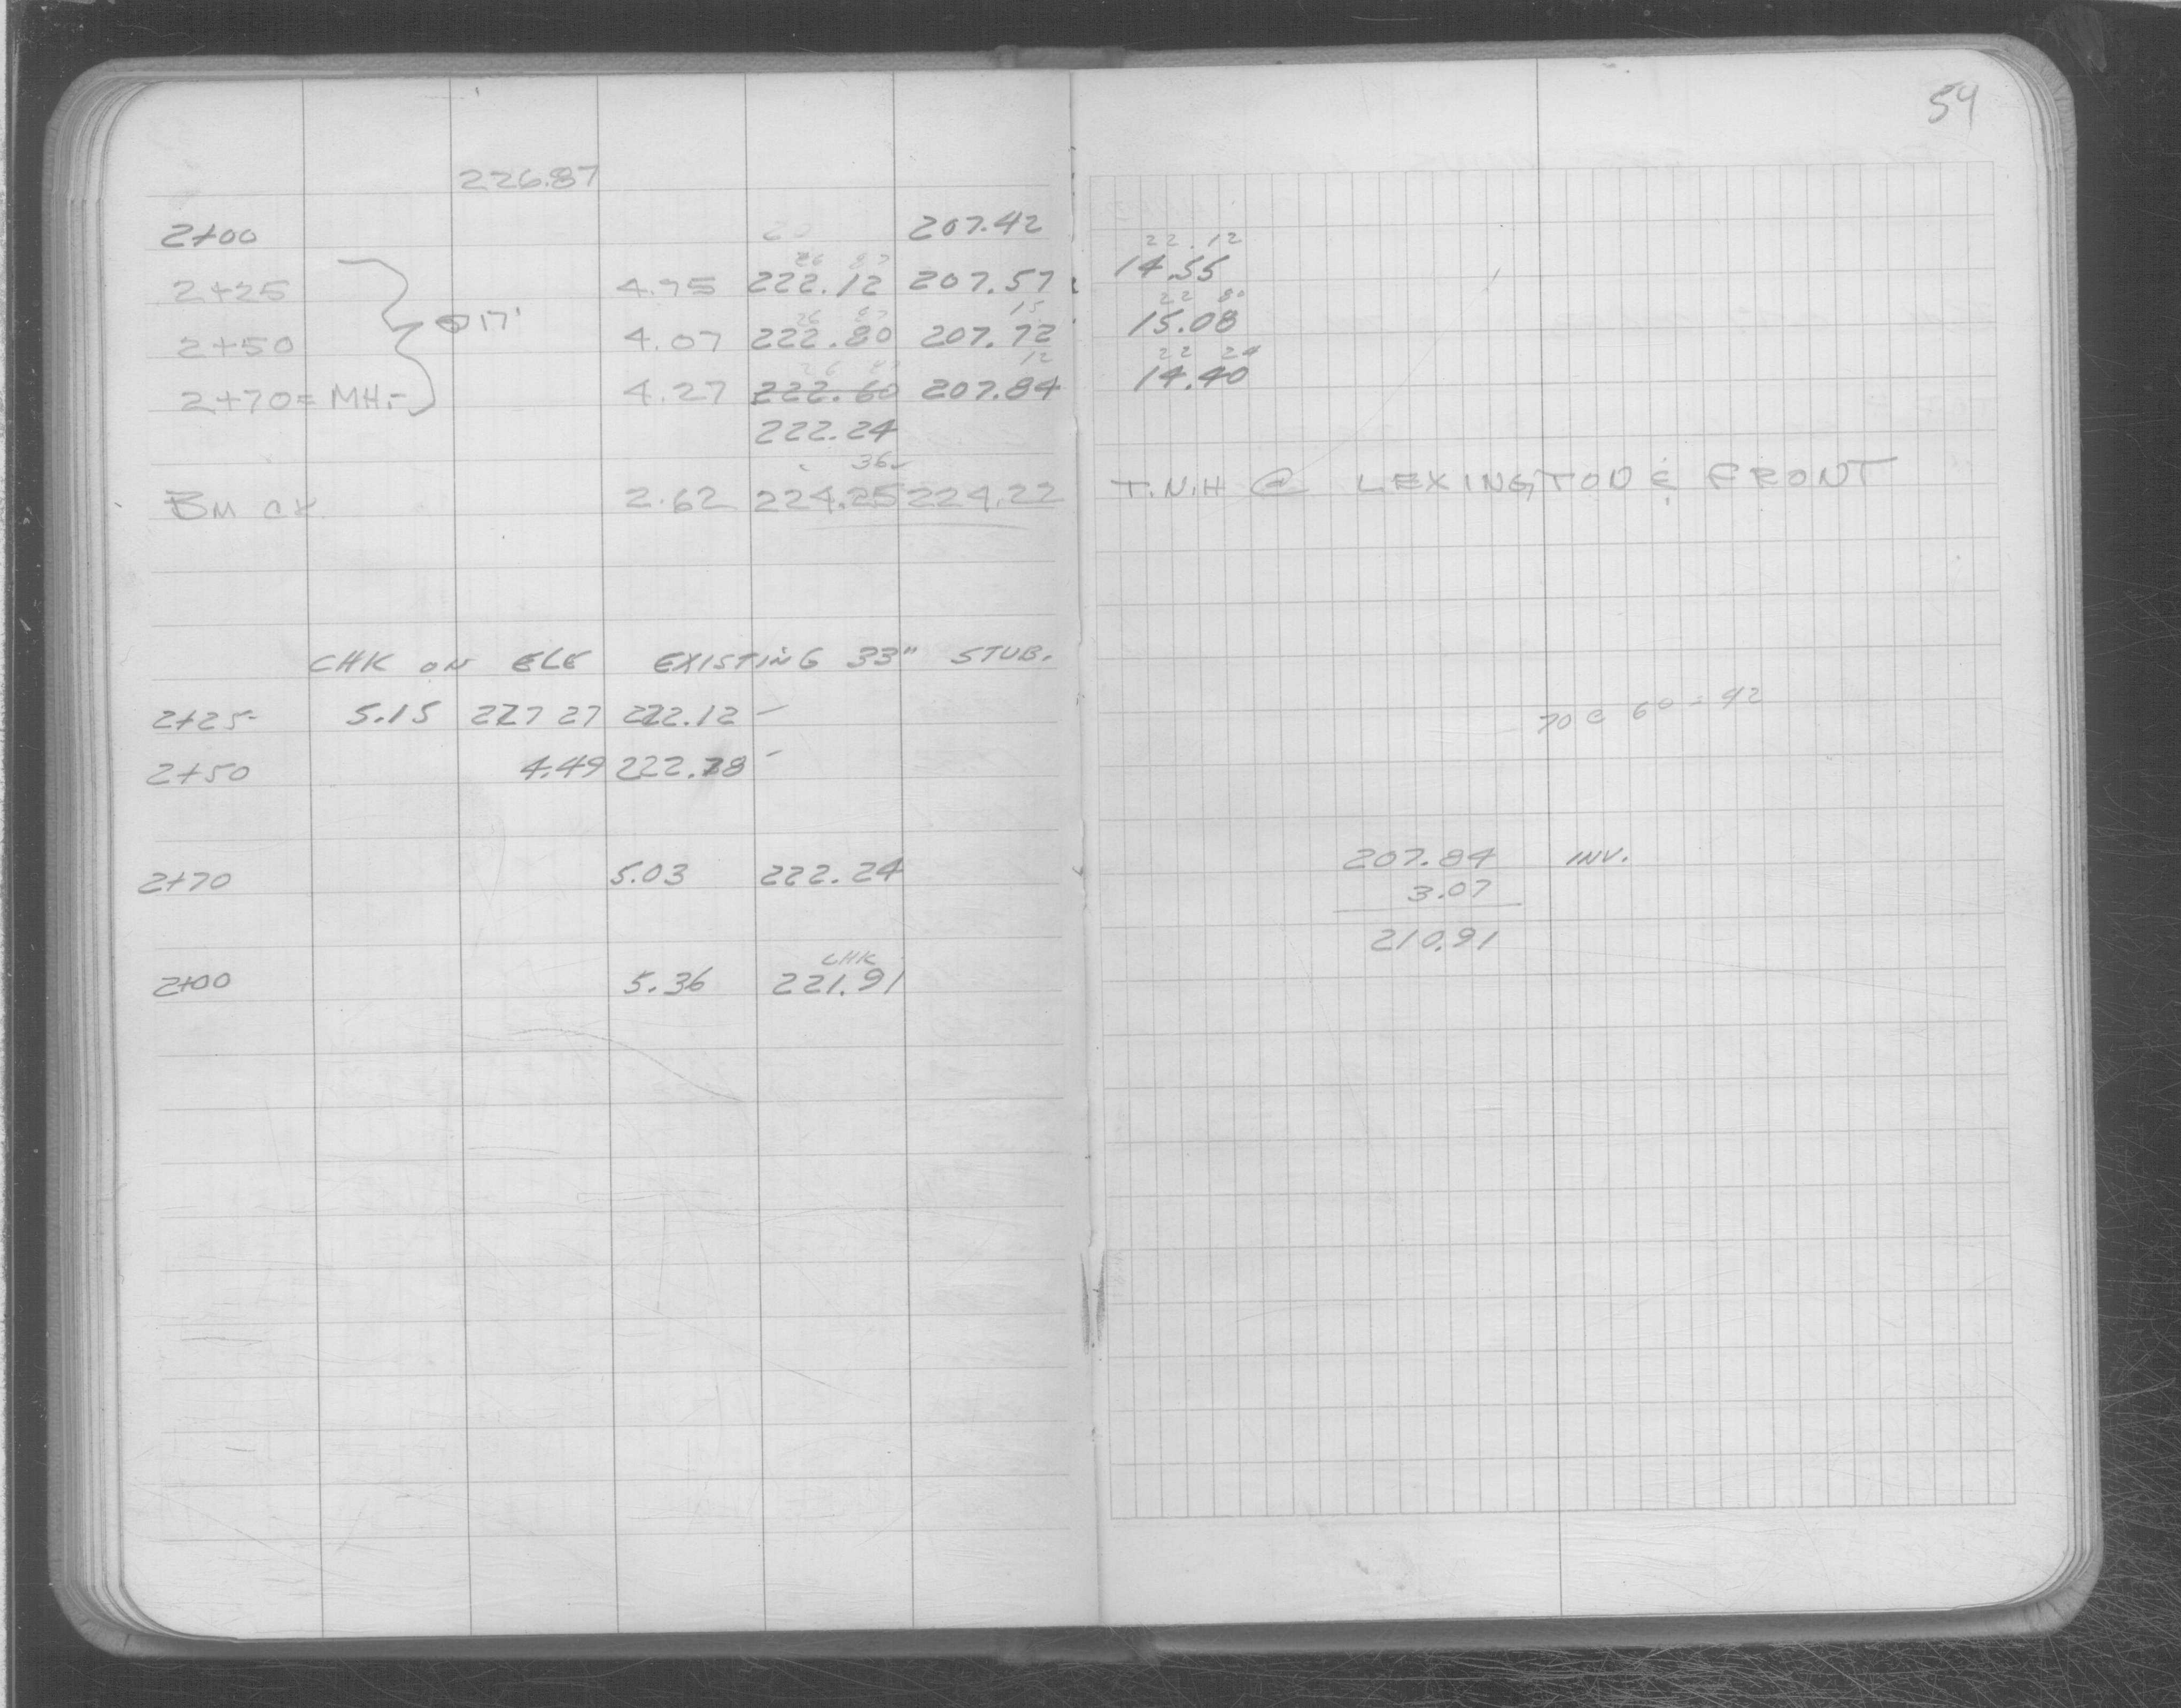 54
226.87
2+00 207.42
22.12
26 87
2+25 4.75 222.12 207.57 14.55
26 87 15 22 80
2+50 @ 17' 4.07 222.80 207.72 15.08
26 87 12 22 24
2+70 = MH.- 4.27 222.60 207.84 14.40
222.24
36
BM CK 2.62 224.25 224.22 T.N.H @ LEXINGTON & FRONT
CHK ON ELE EXISTING 33" STUB.
2+25- 5.15 227 27 222.12 -
70 @ 60 = 42
2+50 4.49 222.78 -
2+70 5.03 222.24
207.84 INV.
3.07
210.91
CHK
2+00 5.36 221.91